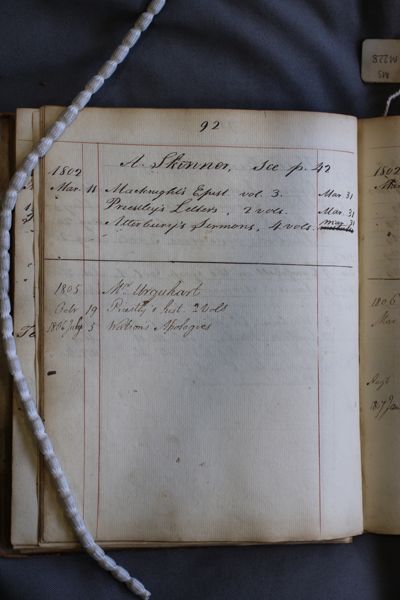 MS
M228
92
A. Skenner, See p. 42
1802
Mar. 11 Macknight's Epist. vol. 3. Mar. 31
Priestley's Letters, 2 vols. Mar. 31
Atterbury's Sermons, 4 vols. mar. 31
1805 Mr. Urquhart
Octr 19 Priestly's hist. 2 Vols
1806 July 5 Watsons Apologies
1802
1806
Mar
Augt
1807 Jan